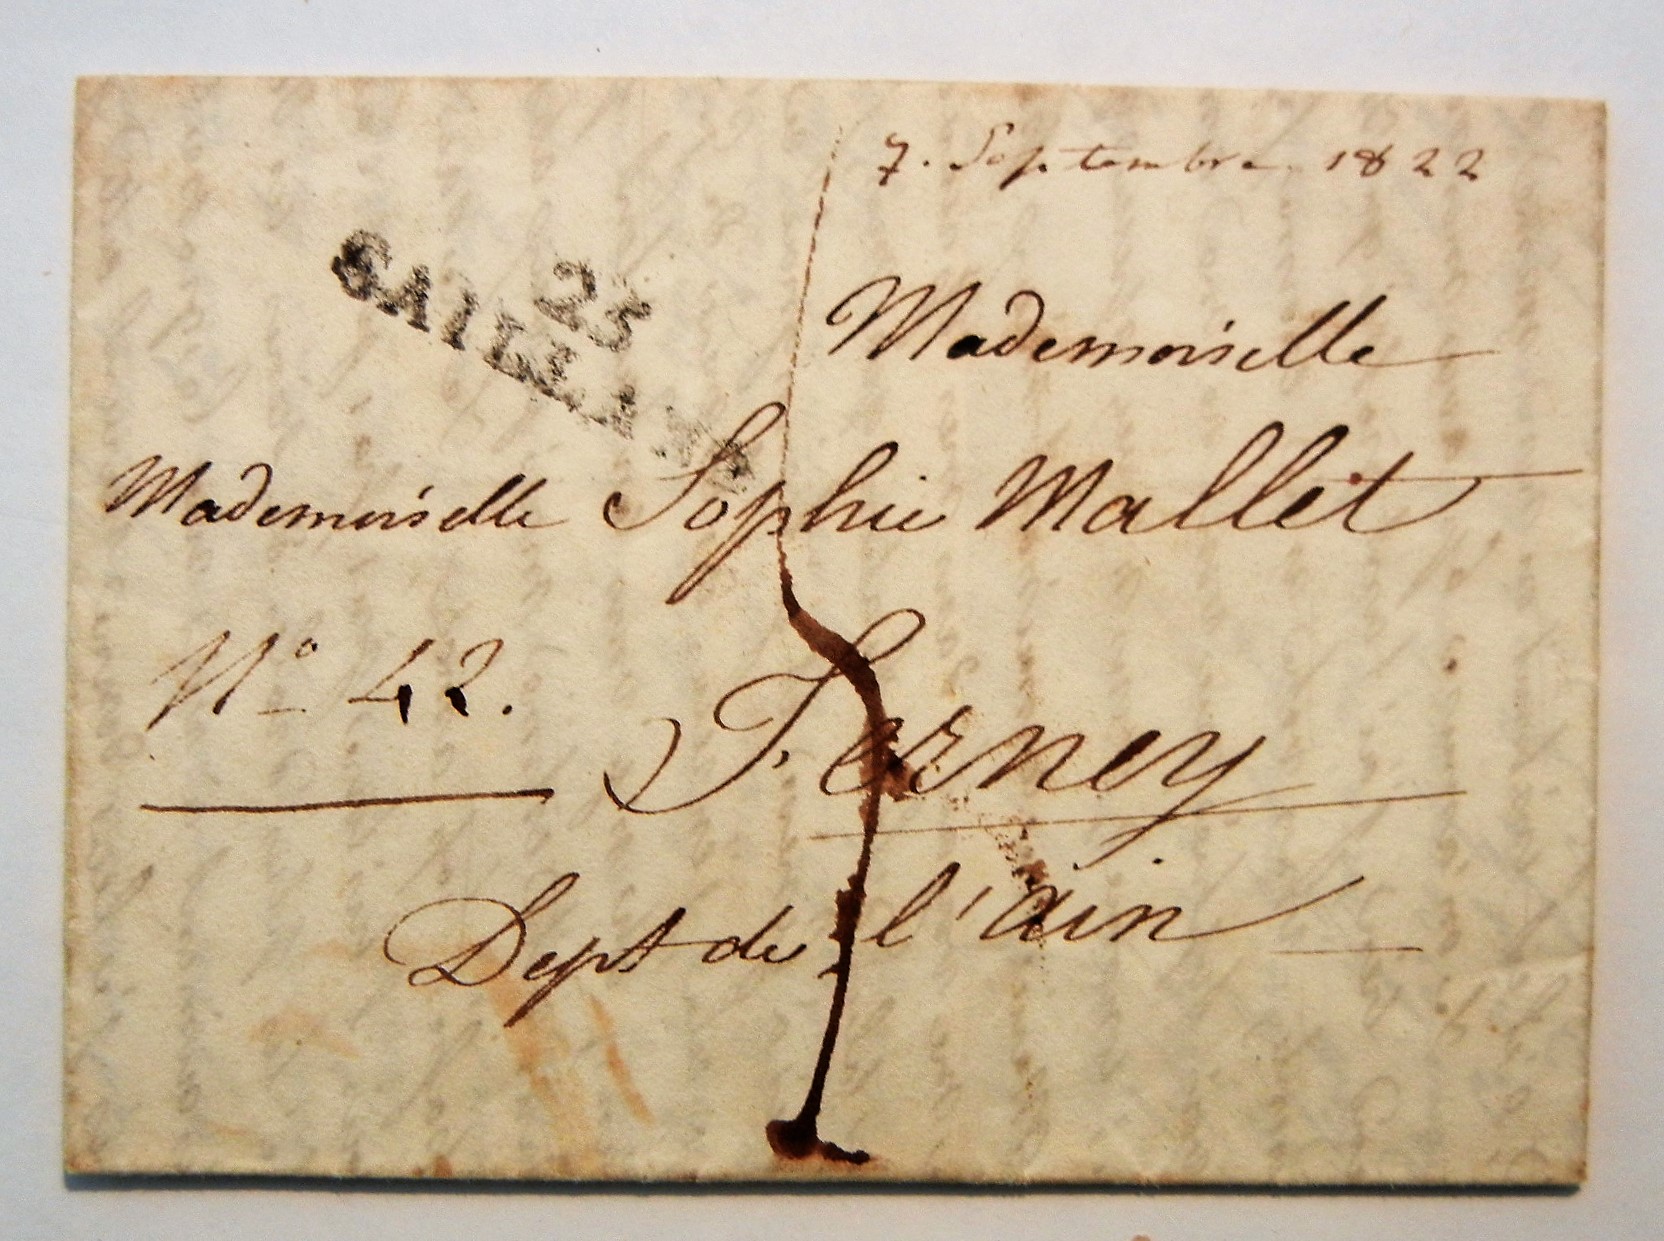 7. Septembre 1822
25
Mademoiselle
Mademoiselle Sophie Mallet
Nº 42.
Ferney
Dept de l'ain